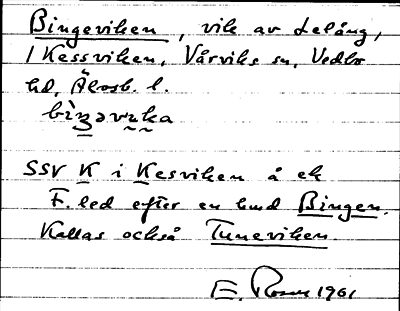 Bingeviken, vik av Lelång,
/ Kessviken, Vårviks sn, Vedbo
hd, Älvsb. l.
SSV K i Kesviken å ek
F. led efter en hund Bingen.
Kallas också Tuneviken.
E. Rosen 1961